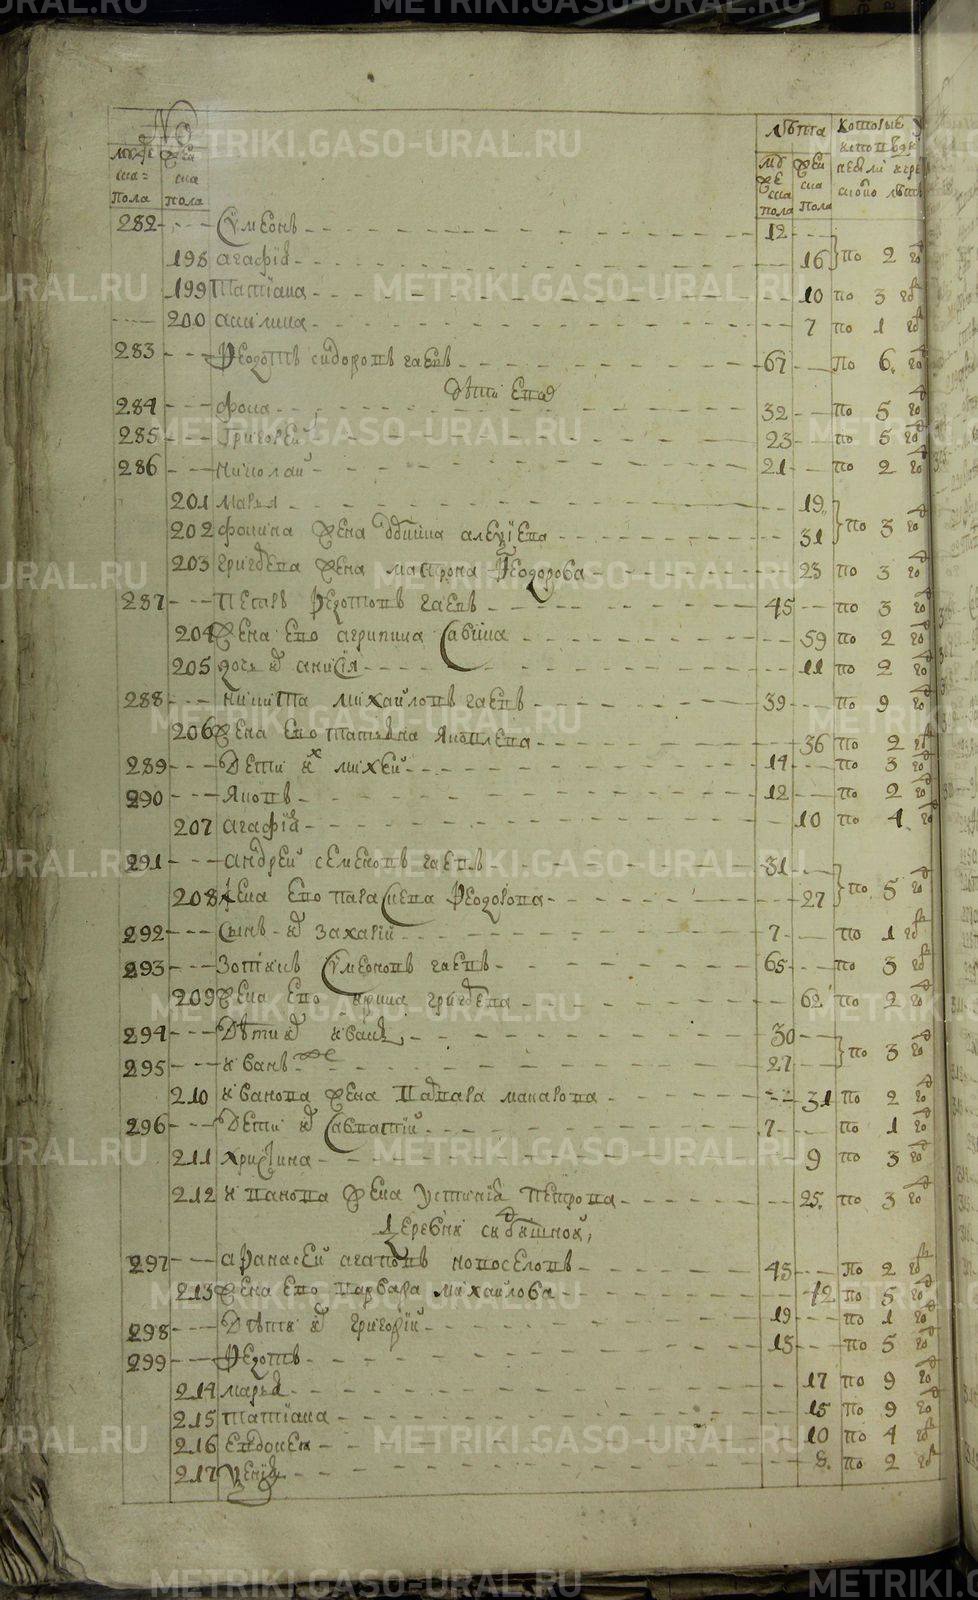 METRIKI.GASO-URAL.RU
№
мужеска пола
женска пола
лѣта
мужеска пола
женска пола
которые
282 Сѵмеонъ 12
198 агафїя 16 по 2 год
199 Татїана 10 по 3 год
200 акилина 7 по 1 год
283 Ѳеодотъ сидоровъ гаевъ 67 по 6 год
дѣти его
284 фока 32 по 5 год
285 Григорей 23 по 5 год
286 Николай 21 по 2 год
201 марья 19
202 фокина жена алеѯїева 31 по 3 год
203 григорьева жена матрона Ѳеодорова 23 по 3 год
287 Петръ Ѳедотовъ гаевъ 45 по 3 год
204 жена ево агрипина Савина 59 по 2 год
205 дочь ихъ анисїя 11 по 2 год
288 Никита михайловъ гаевъ 39 по 9 год
206 жена ево татьяна Яковлева 36 по 2 год
289 Дети их михей 14 по 3 год
290 Яковъ 12 по 2 год
207 агафїя 10 по 4 год
291 андрей семеновъ гаевъ 31
208 жена ево параскева Ѳеодорова 27 по 5 год
292 Сынъ их захарїй 7 по 1 год
293 Зотикъ Сѵмеоновъ гаевъ 65 по 3 год
209 жена ево ирина григорьева 62 по 2 год
294 Дѣти их иванъ 30
295 иванъ же 27 по 3 год
210 иванова жена Варвара макарова 31 по 2 год
296 Дети их Савватїй 7 по 1 год
211 христина 9 по 3 год
212 иванова жена устинїя Петрова 25 по 3 год
Деревни
297 афанасей агаповъ новоселовъ 45 по 2 год
213 жена ево варвара михайлова 42 по 5 год
298 Дѣти их григорїй 19 по 1 год
299 Ѳедотъ 15 по 5 год
214 марья 17 по 9 год
215 татїана 15 по 9 год
216 евдокея 10 по 4 год
217 8 по 2 год